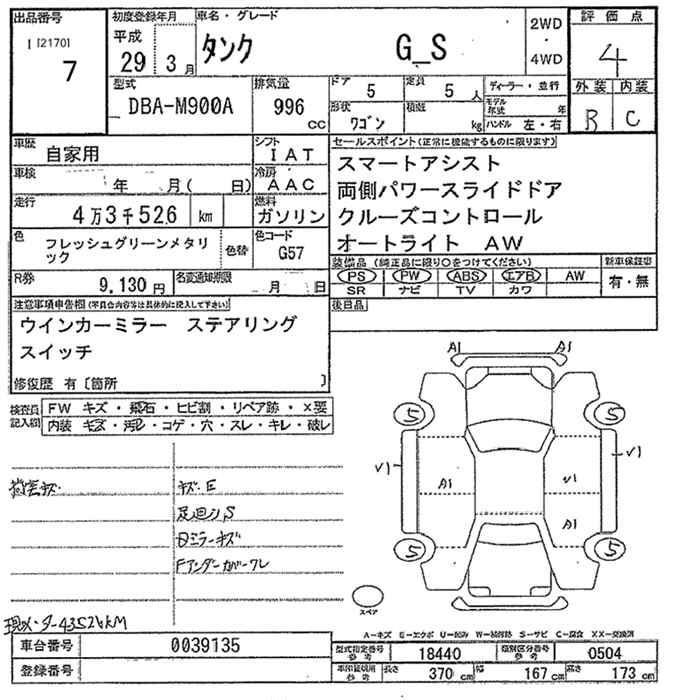 出品番号
初度登録年月
車名・グレード
評価点
1 [2170]
7
平成
29年 3月
タンク G_S
2WD
・
4WD
4
型式
DBA-M900A
排気量
996 cc
ドア 5
定員 5人
ディーラー・並行
外装 内装
形状 ワゴン
積載 kg
モデル年式 年
ハンドル 左・右
B C
車歴
自家用
シフト
IAT
セールスポイント(正常に機能するものに限ります)
スマートアシスト
両側パワースライドドア
クルーズコントロール
オートライト AW
車検
年 月( 日)
冷房
AAC
走行
4万3千526 km
燃料
ガソリン
色
フレッシュグリーンメタリック
色替
色コード
G57
装備品(純正品に限り○をつけてください)
新車保証書
PS PW ABS エアB AW
SR ナビ TV カワ
有・無
R券
9,130円
名変通知期限
月 日
注意事項申告欄(不具合内容等は具体的に記入して下さい)
後日品
ウインカーミラー ステアリング
スイッチ
修復歴 有〔箇所 〕
検査員記入欄
FW キズ・飛石・ヒビ割・リペア跡・X要
内装 キズ・汚レ・コゲ・穴・スレ・キレ・破レ
A1 A1
5 5
V1 V1
A1 V1
A1
5 5
キズE
足回りS
Fアンダーカバーワレ
スペア
A-キズ E-エクボ U-凹み W-補修跡 S-サビ C-腐食 XX-交換済
車台番号
0039135
型式指定番号 参考
18440
類別区分番号 参考
0504
登録番号
車両証明用 参考
長さ 370 cm
幅 167 cm
高さ 173 cm